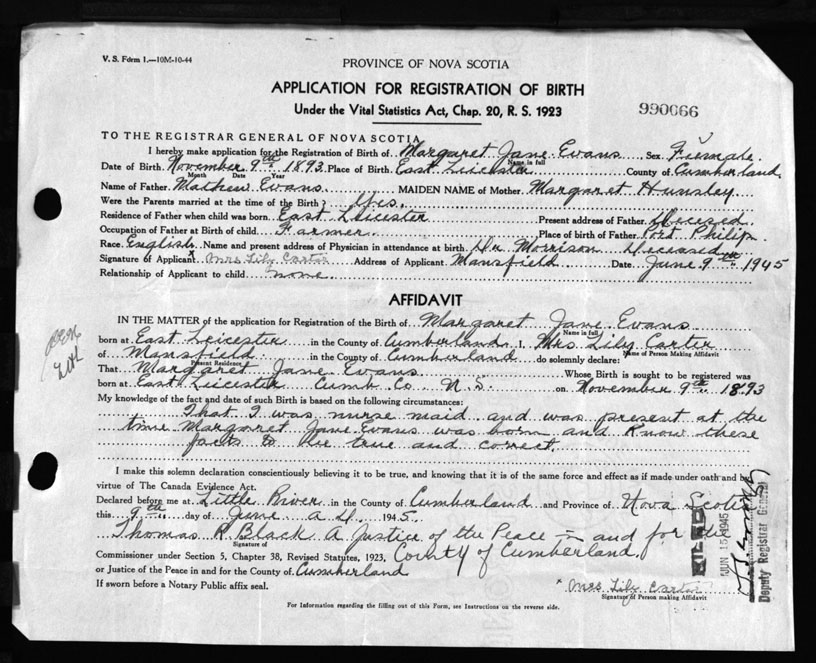 V. S. Form 1.—10M-10-44
PROVINCE OF NOVA SCOTIA
APPLICATION FOR REGISTRATION OF BIRTH
Under the Vital Statistics Act, Chap. 20, R. S. 1923
990066
TO THE REGISTRAR GENERAL OF NOVA SCOTIA
I hereby make application for the Registration of Birth of Margaret Jane Evans Sex Fiemale.
Name in full
Date of Birth November 9th 1893 Place of Birth East Leicester County of Cumberland
Month Date Year
Name of Father Mathew Evans MAIDEN NAME of Mother Margaret Hunsley
Were the Parents married at the time of the Birth? Yes.
Residence of Father when child was born East Leicester Present address of Father Diecesed
Occupation of Father at Birth of child Farmer. Place of birth of Father Port Philip
Race English Name and present address of Physician in attendance at birth Dr Morrison Dieceased
Signature of Applicant x Mrs Lily Carter Address of Applicant Mansfield Date June 9th 1945
Relationship of Applicant to child none
AFFIDAVIT
IN THE MATTER of the application for Registration of the Birth of Margaret Jane Evans
Name in full
born at East Leicester in the County of Cumberland I, Mrs Lily Carter
Name of Person Making Affidavit
of Mansfield in the County of Cumberland do solemnly declare:
Present Residence
That Margaret Jane Evans Whose Birth is sought to be registered was
born at East Leicester Cumb Co N.S. on November 9th 1893
My knowledge of the fact and date of such Birth is based on the following circumstances:
That I was nurse maid and was present at the
time Margaret Jane Evans was born and Know these
facts to be true and correct.
I make this solemn declaration conscientiously believing it to be true, and knowing that it is of the same force and effect as if made under oath and by
virtue of The Canada Evidence Act.
Declared before me at Little River in the County of Cumberland and Province of Nova Scotia
this 9th day of June A.D. 1945.
Thomas R. Black A Justice of the Peace in and for the
Signature of
Commissioner under Section 5, Chapter 38, Revised Statutes, 1923, County of Cumberland
or Justice of the Peace in and for the County of Cumberland
If sworn before a Notary Public affix seal.
x Mrs Lily Carter
Signature of Person making Affidavit
For Information regarding the filling out of this Form, see Instructions on the reverse side.
FILED
JUN 15 1945
Deputy Registrar General